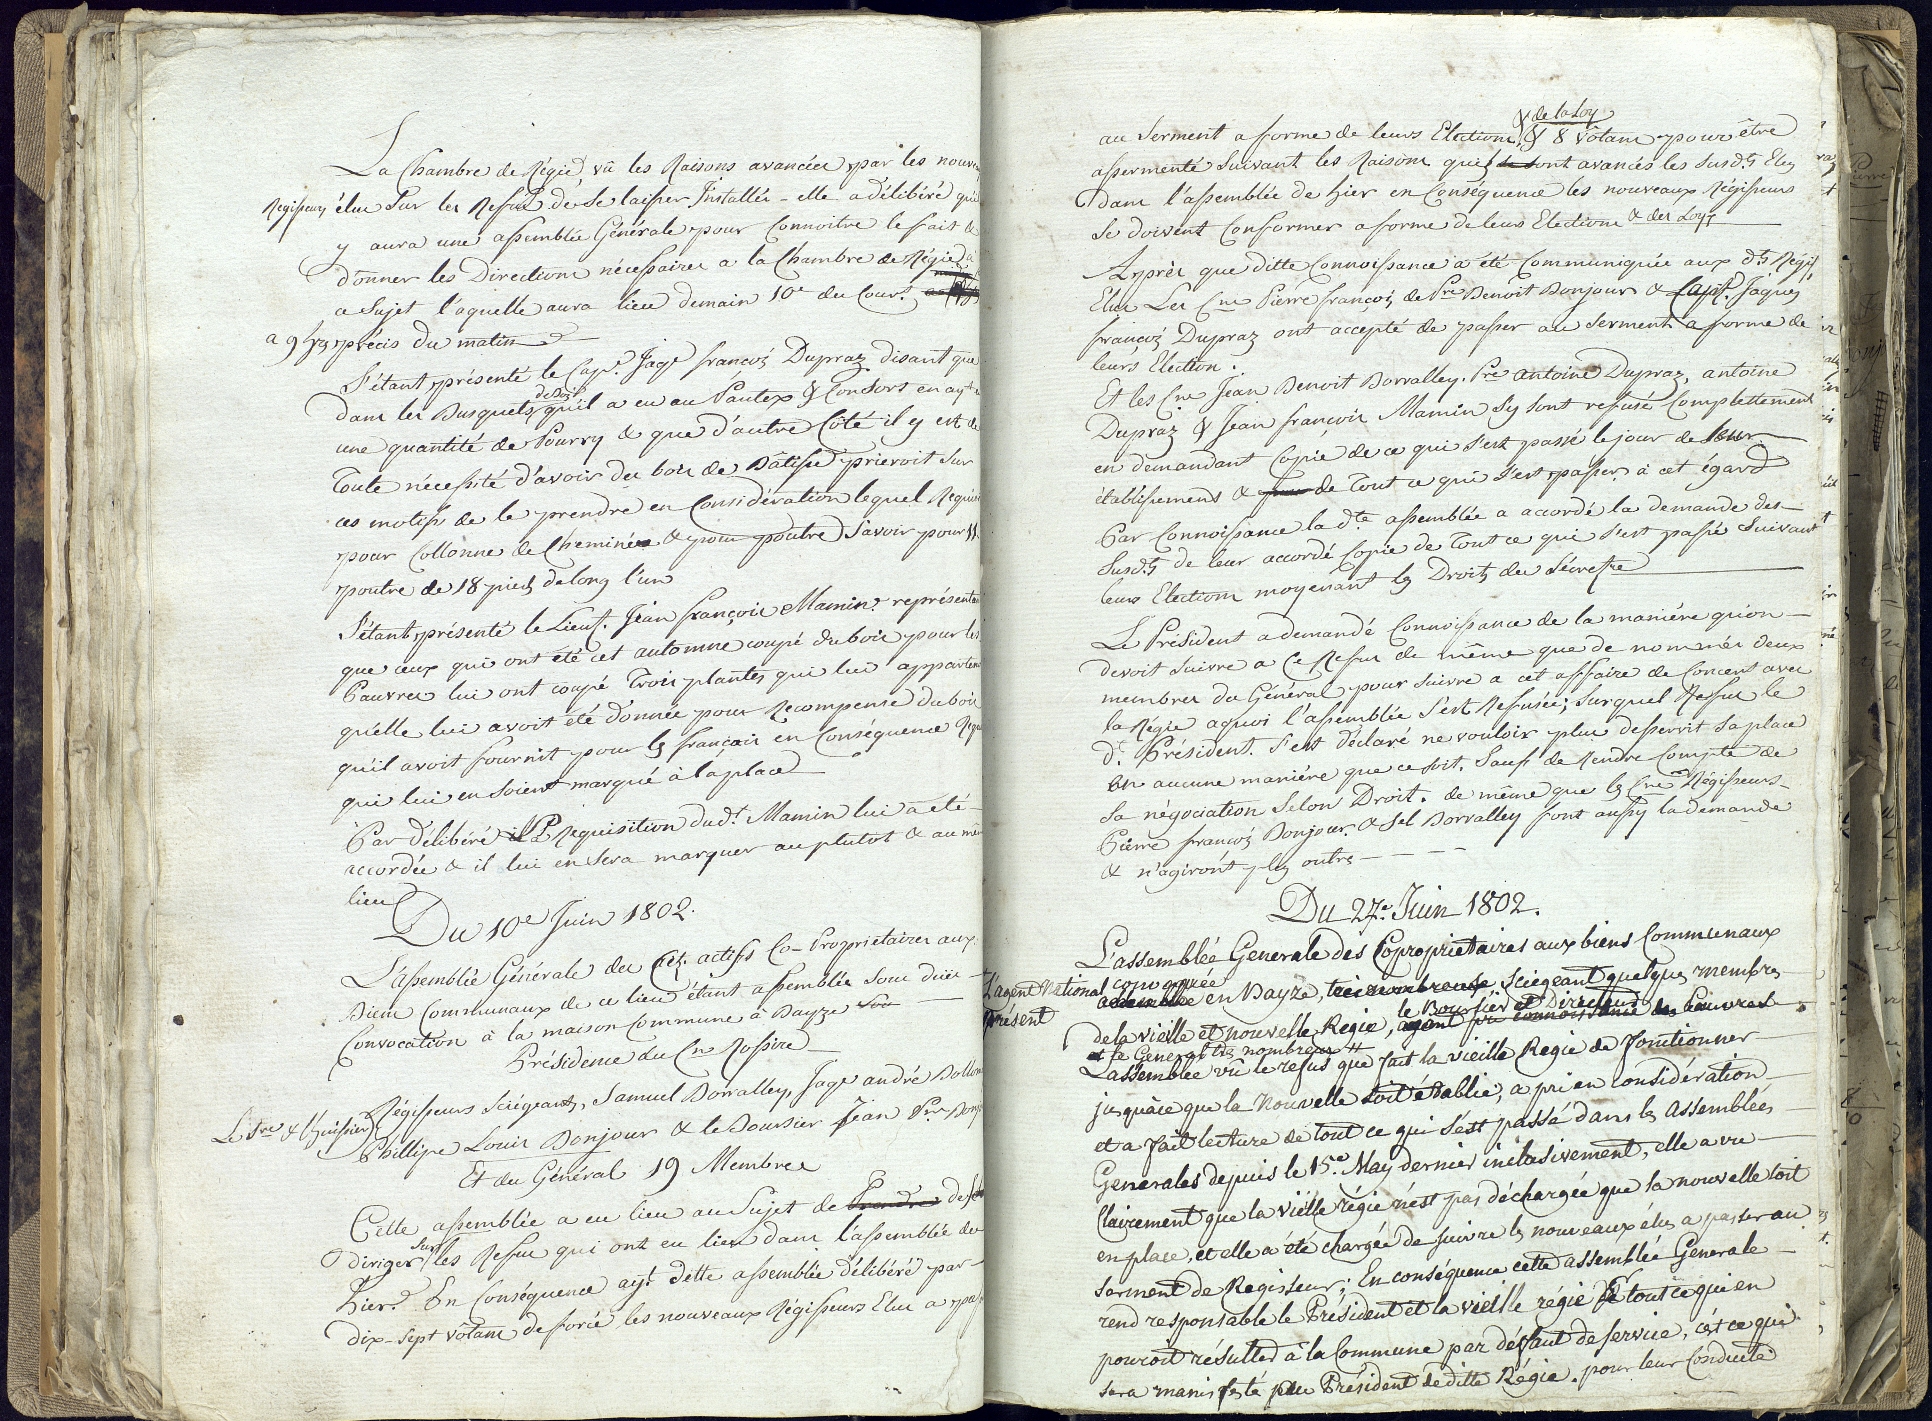 La Chambre de Régie, vû les Raisons avancées par les nouv
Régisseurs élus Sur les Refus de se laisser Installée - elle a délibéré qu'il
y aura une assemblée Générale pour Connoitre le fait &
donner les Directions nécessaires a la Chambre de Régie à
ce Sujet l'aquelle aura lieu demain 10e du Cour.t
a 9 hrs précis du matin
S'étant présenté le Cap.e Jaqs françois Dupraz disant que
dans les Busquets qu'il a eu au Pautex & Consors en ayt
une quantité de Pourry & que d'autre Côté il y est de
Toute nécessité d'avoir du bois de Bâtisse prieroit sur
ces motifs de le prendre en Considération lequel Requier
pour Collonne de Cheminée & pour poutre Savoir pour 11
poutre de 18 pieds de long l'un
S'étant présenté le Lieut. Jean françois Mamin représentant
que ceux qui ont été cet automne coupé du bois pour les
Pauvres lui ont coupé Trois plantes qui lui apparten
qu'elle lui avoit été donnée pour Recompense du bois
qu'il avoit fournit pour les français en Conséquence Requ
qui lui en soient marqué à la place
Par délibéré Requisition dud.t Mamin lui a été
accordée & il lui en sera marquer au plutot & au mê
lieu
Du 10e Juin 1802.
L'assemblée Générale des Cit. actifs Co-Propriétaires aux
Biens Communaux de ce lieu étant assemblée sous due
Convocation à la maison Commune à Bayze sous
Présidence du Cn Rossire
Régisseurs Sciégeants, Samuel Dorvalley, Jaqs andré
Le Sre & l'huissier Phillipe Louis Bonjour & le Boursier Jean Pre Bonj
Et du Général 19 Membres
Cette assemblée a eu lieu au Sujet de Prendre de se
diriger Sur les Refus qui ont eu lieu dans l'assemblée de
hier. En Conséquence ayt ditte assemblée délibéré par
dix-sept vôtans de forcé les nouveaux Régisseurs Elus a pas
& de la Loy
au Serment a forme de leurs Elections, & 8 vôtans pour être
assermenté Suivant les Raisons que sont avancés les Susd.ts Elus
dans l'assemblée de hier en Conséquence les nouveaux Régisseurs
se doivent Conformer a forme de leurs Elections & des Loys
Apprès que ditte Connoissance a été Communiquée aux d.ts Régis
Elus Les Cns Pierre françois de Pre Benoit Bonjour & Capt. Jaques
françois Dupraz ont accépté de passer au Serment a forme de
leurs Election.
Et les Cns Jean Benoit Dorvalley, Pre antoine Dupraz, antoine
Dupraz & Jean françois Mamin s'y sont refusé complettement
en demandant Copie de ce qui s'est passé le jour de leur
établissement & de Tout ce qui s'est passer à cet égard
Par Connoissance la d.te assemblée a accordé la demande des
Susd.ts de leur accordé Copie de Tout ce qui s'est passé Suivant
leurs Elections moyenant les Droits du Sécretre
Le Président a demandé Connoissance de la maniére qu'on
devoit Suivre a Ce Refus de même que de nommer deux
membres du Général pour Suivre a cet affaire de Concert avec
la Régie aquoi l'assemblée s'est Refusée; Surquel Reffus le
d.t Président s'est déclaré ne vouloir plus desservir sa place
en aucune maniére que ce soit. Sauf de Rendre Compte de
sa négociation Selon Droit. de même que les Cns Régisseurs
Pierre françois Bonjour & Sel Dorvalley font aussy la demande
& n'agiront plus outre
Du 27e Juin 1802.
L'assemblée Generale des Coproprietaires aux biens Communaux
convoquée
L'agent National présent
assemblée en Bayze, très nombreuse, Sciégeant quelques membres
le Boursier et Directeur des Pauvres
de la vieille et nouvelle Regie, ayant pri connoissance
et le General très nombreux
L'assemblée vû le refus que fait la vieille Regie de fonctionner
jusqu'àce que la Nouvelle soit établie, a pri en considération
et a fait lecture de tout ce qui s'est passé dans les assemblées
Generales depuis le 15e May dernier inclusivement, elle a vu
Clairement que la viélle régie n'est pas déchargée que la nouvelle soit
en place, et elle a été chargée de suivre les nouveaux élus a passer au
serment de Regisseur; En conséquence cette assemblée Generale
rend responsable le Président et la vieille régie de tout ce qui en
pouroit résulter à la Commune par défaut de service, c'est ce qui
sera manifesté par Président de ditte Régie pour leur Conduite